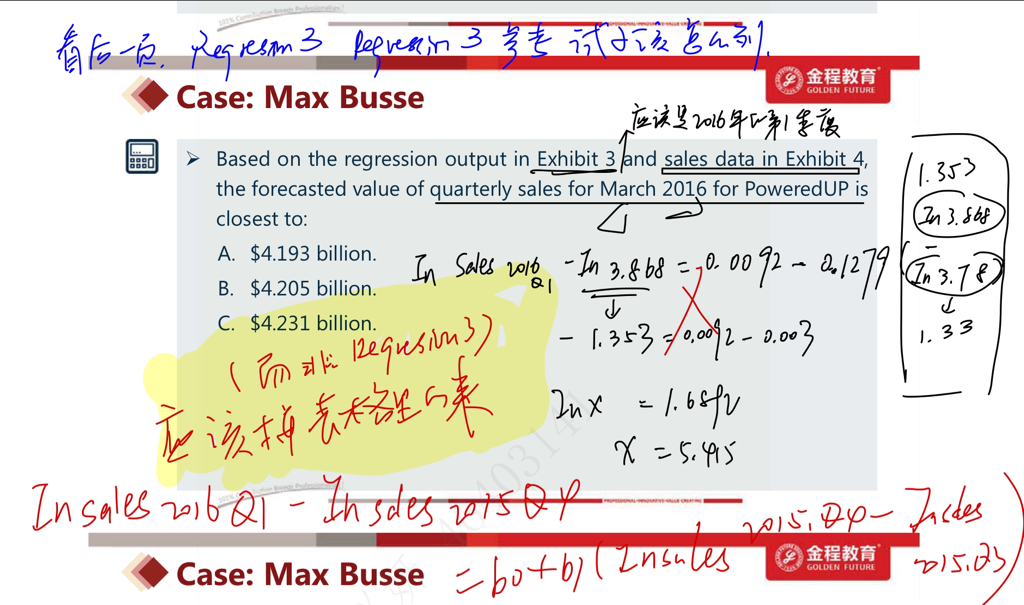 100% Contribution Breeds Professionalism
PROFESSIONAL·INNOVATIVE·VALUE GROWTH
看后一页. Regression 3 Regression 3 考试 应该怎么列.
金程教育
GOLDEN FUTURE
Case: Max Busse
应该是2016年的第1季度
➢ Based on the regression output in Exhibit 3 and sales data in Exhibit 4,
the forecasted value of quarterly sales for March 2016 for PoweredUP is
closest to:
A. $4.193 billion.
B. $4.205 billion.
C. $4.231 billion.
1.353
In 3.868
In 3.78
1.33
In Sales 2016 Q1 - In 3.868 = 0.0092 - 0.1279
- 1.353 = 0.0092 - 0.003
In x = 1.6892
x = 5.415
(而非 Regresion3)
应该按表格里的来
In sales 2016 Q1 - In sales 2015 Q4
= b0 + b1 (In sales 2015.Q4 - In sales 2015.Q3)
金程教育
GOLDEN FUTURE
Case: Max Busse